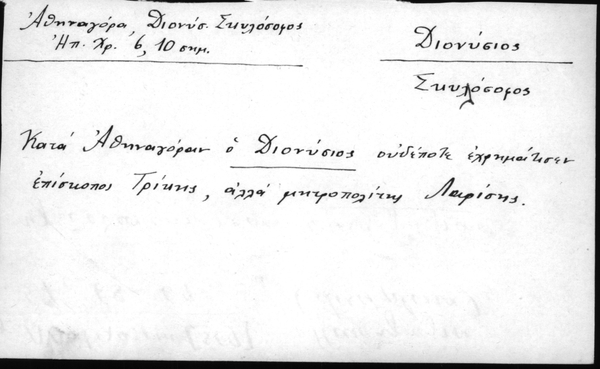 Ἀθηναγόρα, Διονύσ. Σκυλόσοφος
Ἠπ. Χρ. 6, 10 σημ.
Διονύσιος
Σκυλόσοφος
Κατά Ἀθηναγόραν ὁ Διονύσιος οὐδέποτε ἐχρημάτισεν
ἐπίσκοπος Τρίκης, ἀλλά μητροπολίτης Λαρίσης.